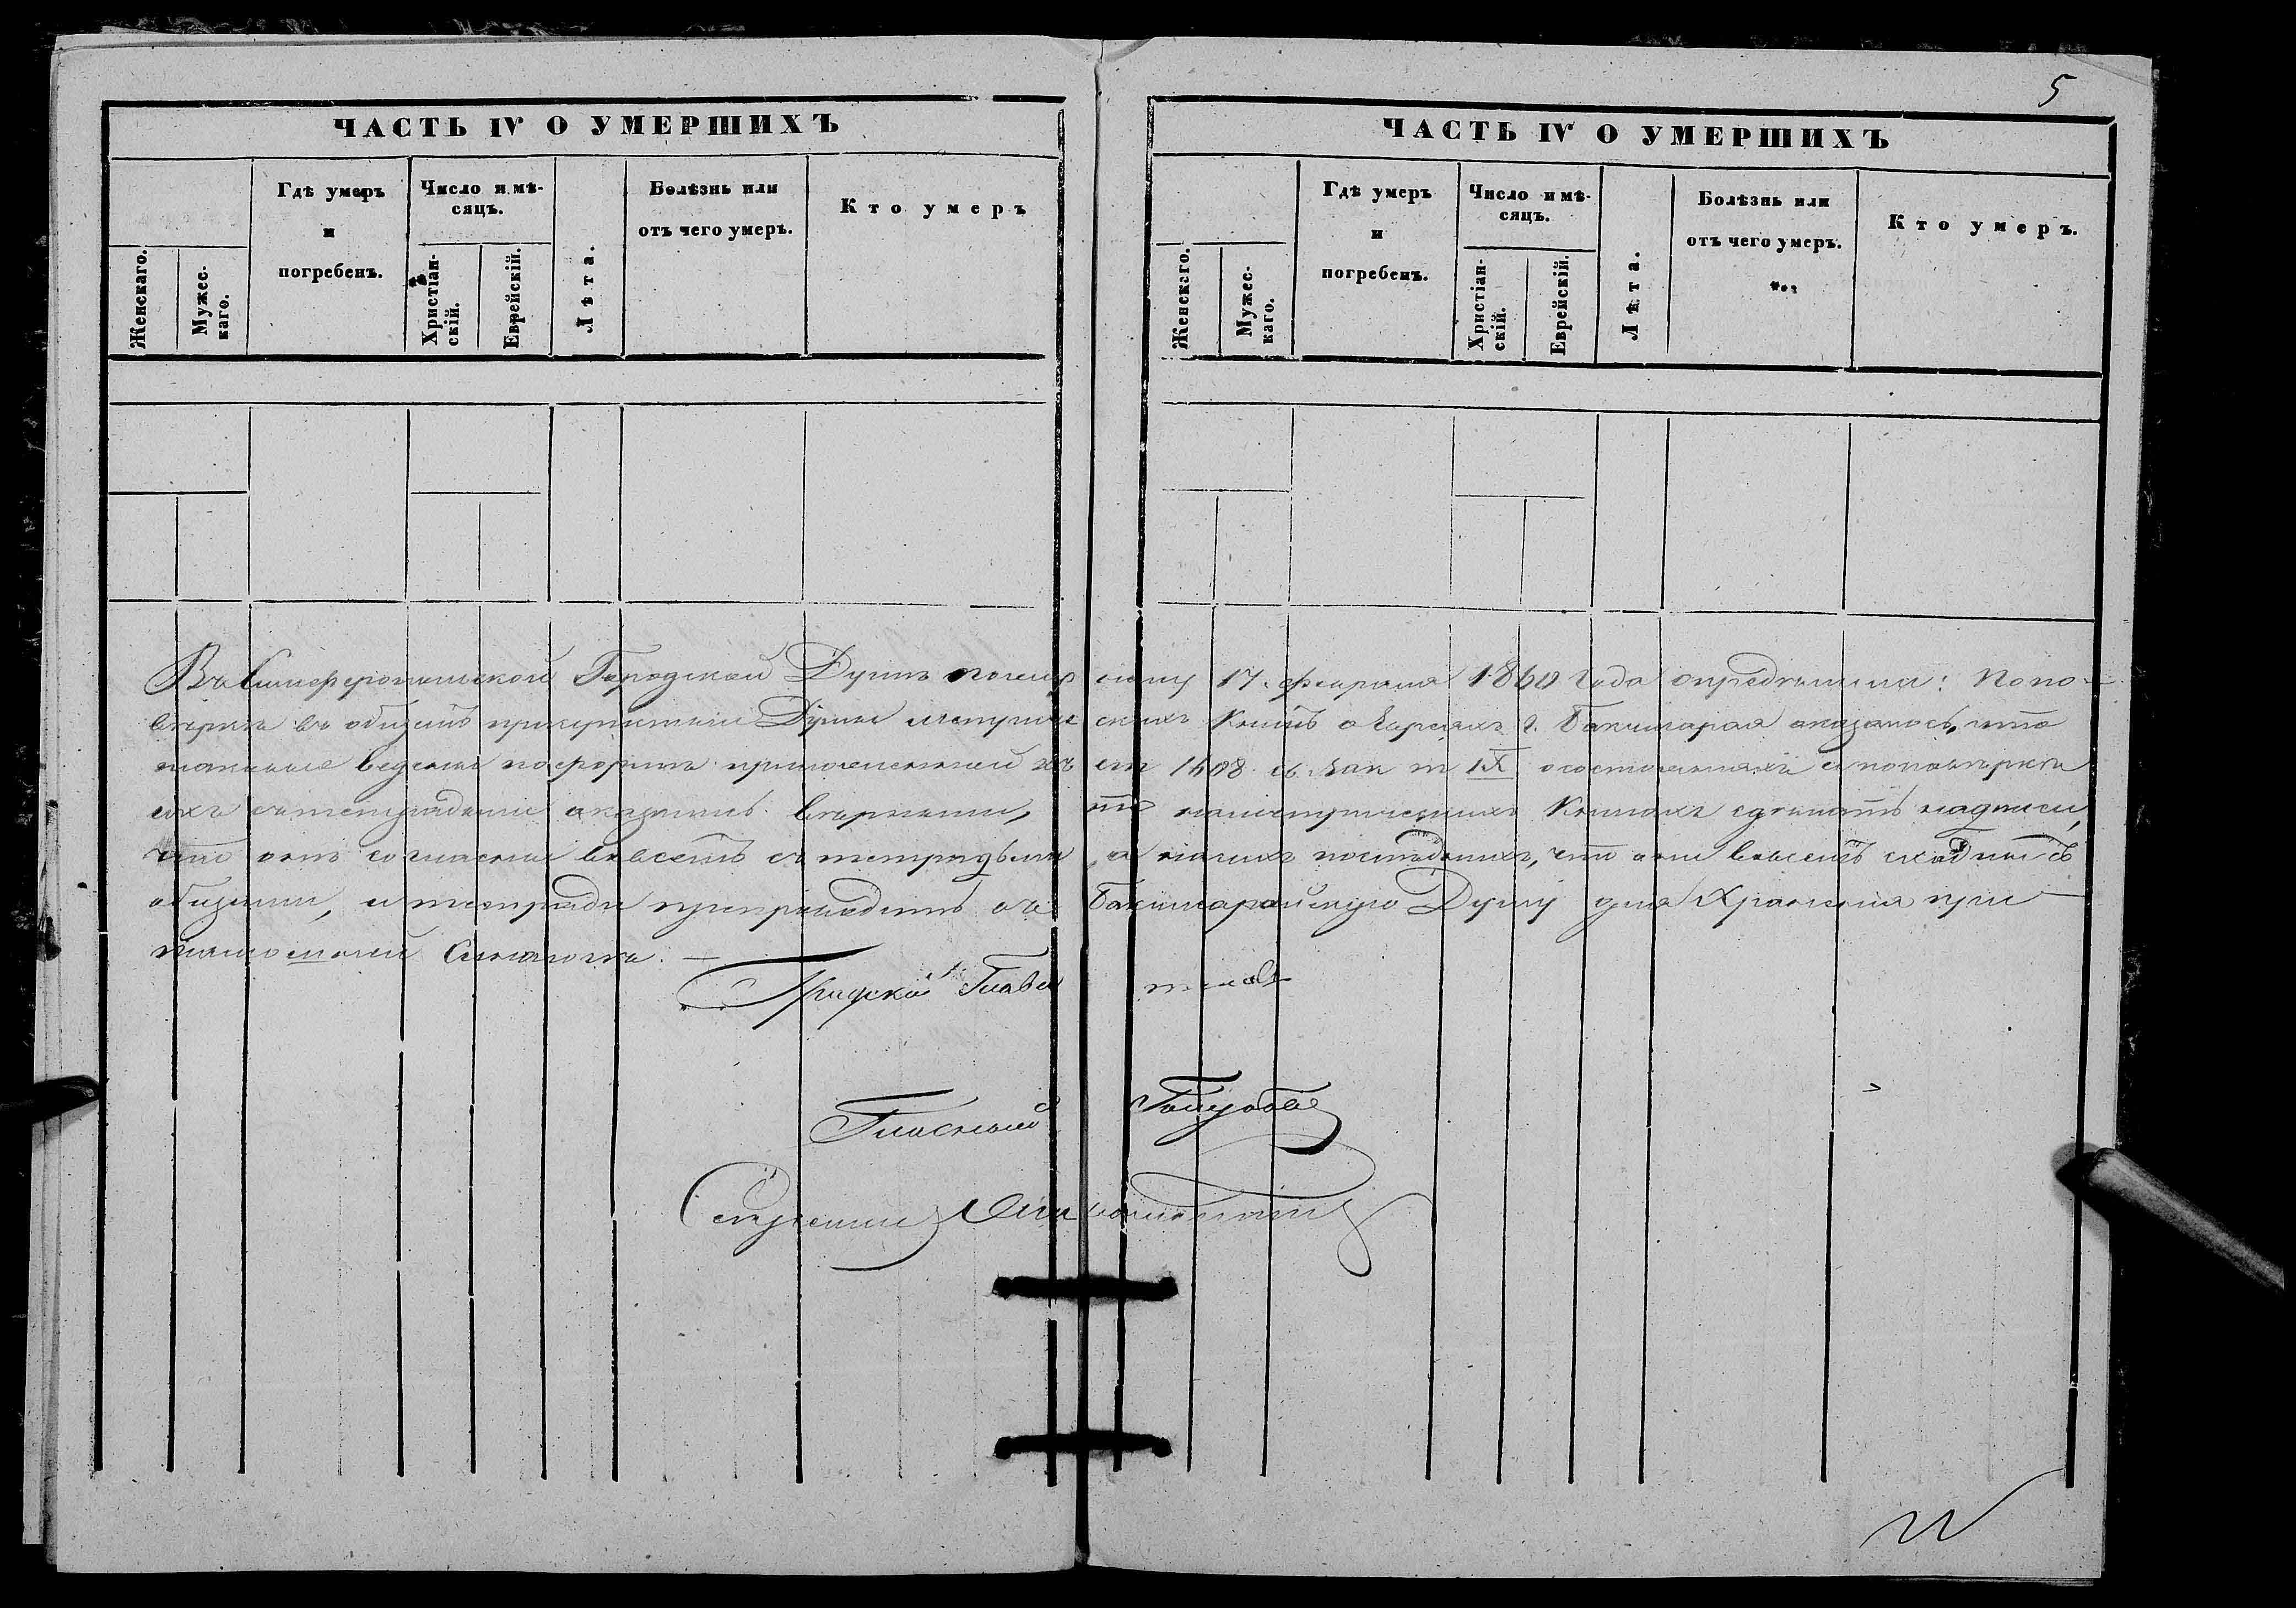 5
ЧАСТЬ IV О УМЕРШИХЪ
Женскаго.
Мужес-
каго.
Гдѣ умеръ
и
погребенъ.
Число и мѣ-
сяцъ.
Христіан-
скій.
Еврейскій.
Лѣта.
Болѣзнь или
отъ чего умеръ.
Кто умеръ
ЧАСТЬ IV О УМЕРШИХЪ
Женскаго.
Мужес-
каго.
Гдѣ умеръ
и
погребенъ.
Число и мѣ-
сяцъ.
Христіан-
скій.
Еврейскій.
Лѣта.
Болѣзнь или
отъ чего умеръ.
Кто умеръ.
Въ Симферопольской Городской Думѣ 17. февраля 1860 года опредѣлили: По по-
вѣркѣ въ общемъ присутствіи Думы метрическихъ книгъ о Евреяхъ г. Бакчисарая оказалось, что
таковые ведены по формѣ приложенной къ ст 1408 св. Зак т IX о состояніяхъ и по повѣркѣ
ихъ съ тетрадями оказались вѣрными, метрическихъ книгахъ сдѣлать надписи,
что онѣ согласны вовсемъ съ тетрадьми, а на сихъ послѣднихъ, что они вовсемъ сходны съ
книгами, и тетради препроводить въ Бакчисарайскую Думу для храненія при
тамошней Синагогѣ. —
Градской Глава
Гласный
Секретарь